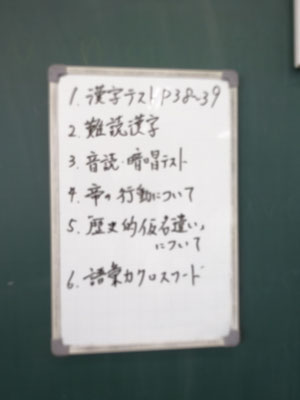 1. 漢字テスト P38~39
2. 難読漢字
3. 音読・暗唱テスト
4. 帝の行動について
5. 歴史的仮名遣い
について
6. 語彙力クロスワード